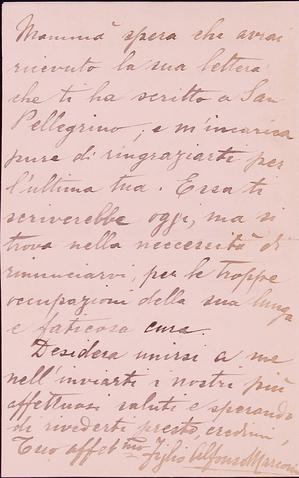 Mammà spera che avrai
ricevuto la sua lettera
che ti ha scritto a San
Pellegrino, e m'incarica
pure di ringraziarti per
l'ultima tua. Essa ti
scriverebbe oggi, ma si
trova nella neccessità di
rinunciarvi, per le troppe
occupazioni della sua lunga
e faticosa cura.
Desidera unirsi a me
nell'inviarti i nostri più
affettuosi saluti e sperando
di rivederti presto credimi,
Tuo affet.mo Figlio Alfonso Marconi